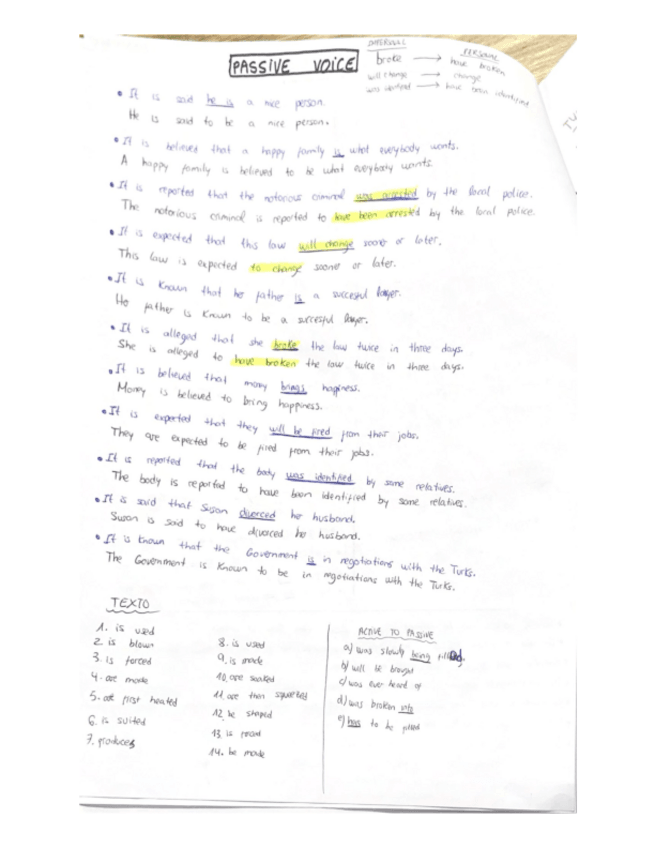 PASSIVE VOICE
IMPERSONAL PERSONAL
broke → have broken
will change → change
was identified → have been identified
• It is said he is a nice person.
He is said to be a nice person.
• It is believed that a happy family is what everybody wants.
A happy family is believed to be what everybody wants.
• It is reported that the notorious criminal was arrested by the local police.
The notorious criminal is reported to have been arrested by the local police.
• It is expected that this law will change sooner or later.
This law is expected to change sooner or later.
• It is known that he father is a succesful
He father is known to be a succesful
• It is alleged that she broke the law twice in three days.
She is alleged to have broken the law twice in three days.
• It is believed that money brings hapiness.
Money is believed to bring happiness.
• It is expected that they will be fired from their jobs.
They are expected to be fired from their jobs.
• It is reported that the body was identified by some relatives.
The body is reported to have been identified by some relatives.
• It is said that Susan divorced her husband.
Susan is said to have divorced her husband.
• It is known that the Government is in negotiations with the Turks.
The Government is known to be in negotiations with the Turks.
TEXTO
1. is used
2. is blown
3. is forced
4. are made
5. are first heated
6. is suited
7. produces
8. is used
9. is made
10. are soaked
11. are then squirted
12. be shaped
13. is
14. be made
ACTIVE TO PASSIVE
a) was slowly being
b) will be brought
c) was ever heard of
d) was broken into
e) has to be